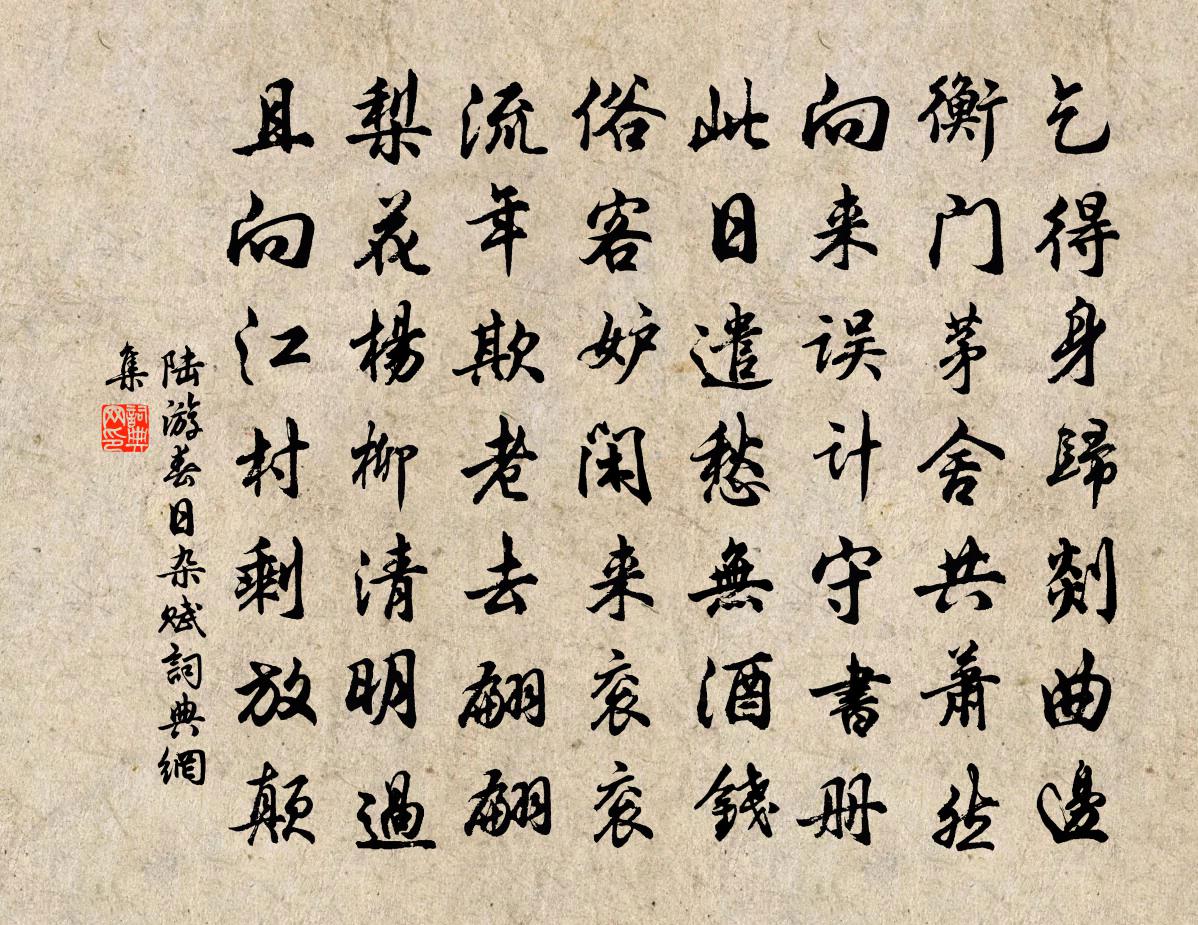 乞得身歸剡曲邊
衡門茅舍共蕭然
向来误计守書册
此日遣愁無酒錢
俗客妒闲来衮衮
流年欺老去翩翩
梨花楊柳清明過
且向江村剩放颠
陆游春日杂赋詞典網
集
詞典
网印